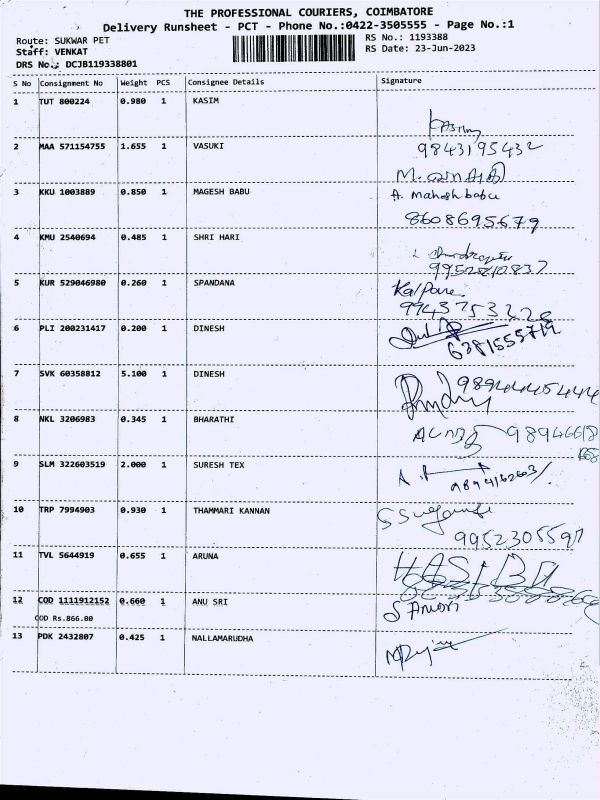 THE PROFESSIONAL COURIERS, COIMBATORE
Delivery Runsheet - PCT - Phone No.:0422-3505555 - Page No.:1
Route: SUKWAR PET
RS No.: 1193388
Staff: VENKAT
RS Date: 23-Jun-2023
DRS No.: DCJB119338801
S No Consignment No Weight PCS Consignee Details Signature
1 TUT 800224 0.980 1 KASIM
9843195432
2 MAA 571154755 1.655 1 VASUKI
3 KKU 1003889 0.850 1 MAGESH BABU A. Mahesh babu
8608695679
4 KMU 2540694 0.485 1 SHRI HARI
5 KUR 529046980 0.260 1 SPANDANA Kalpana
9943753228
6 PLI 200231417 0.200 1 DINESH
6381555719
7 SVK 60358812 5.100 1 DINESH
8 NKL 3206983 0.345 1 BHARATHI
9 SLM 322603519 2.000 1 SURESH TEX
10 TRP 7994903 0.930 1 THAMMARI KANNAN
11 TVL 5644919 0.655 1 ARUNA
12 COD 1111912152 0.660 1 ANU SRI
COD Rs.866.00
13 PDK 2432807 0.425 1 NALLAMARUDHA